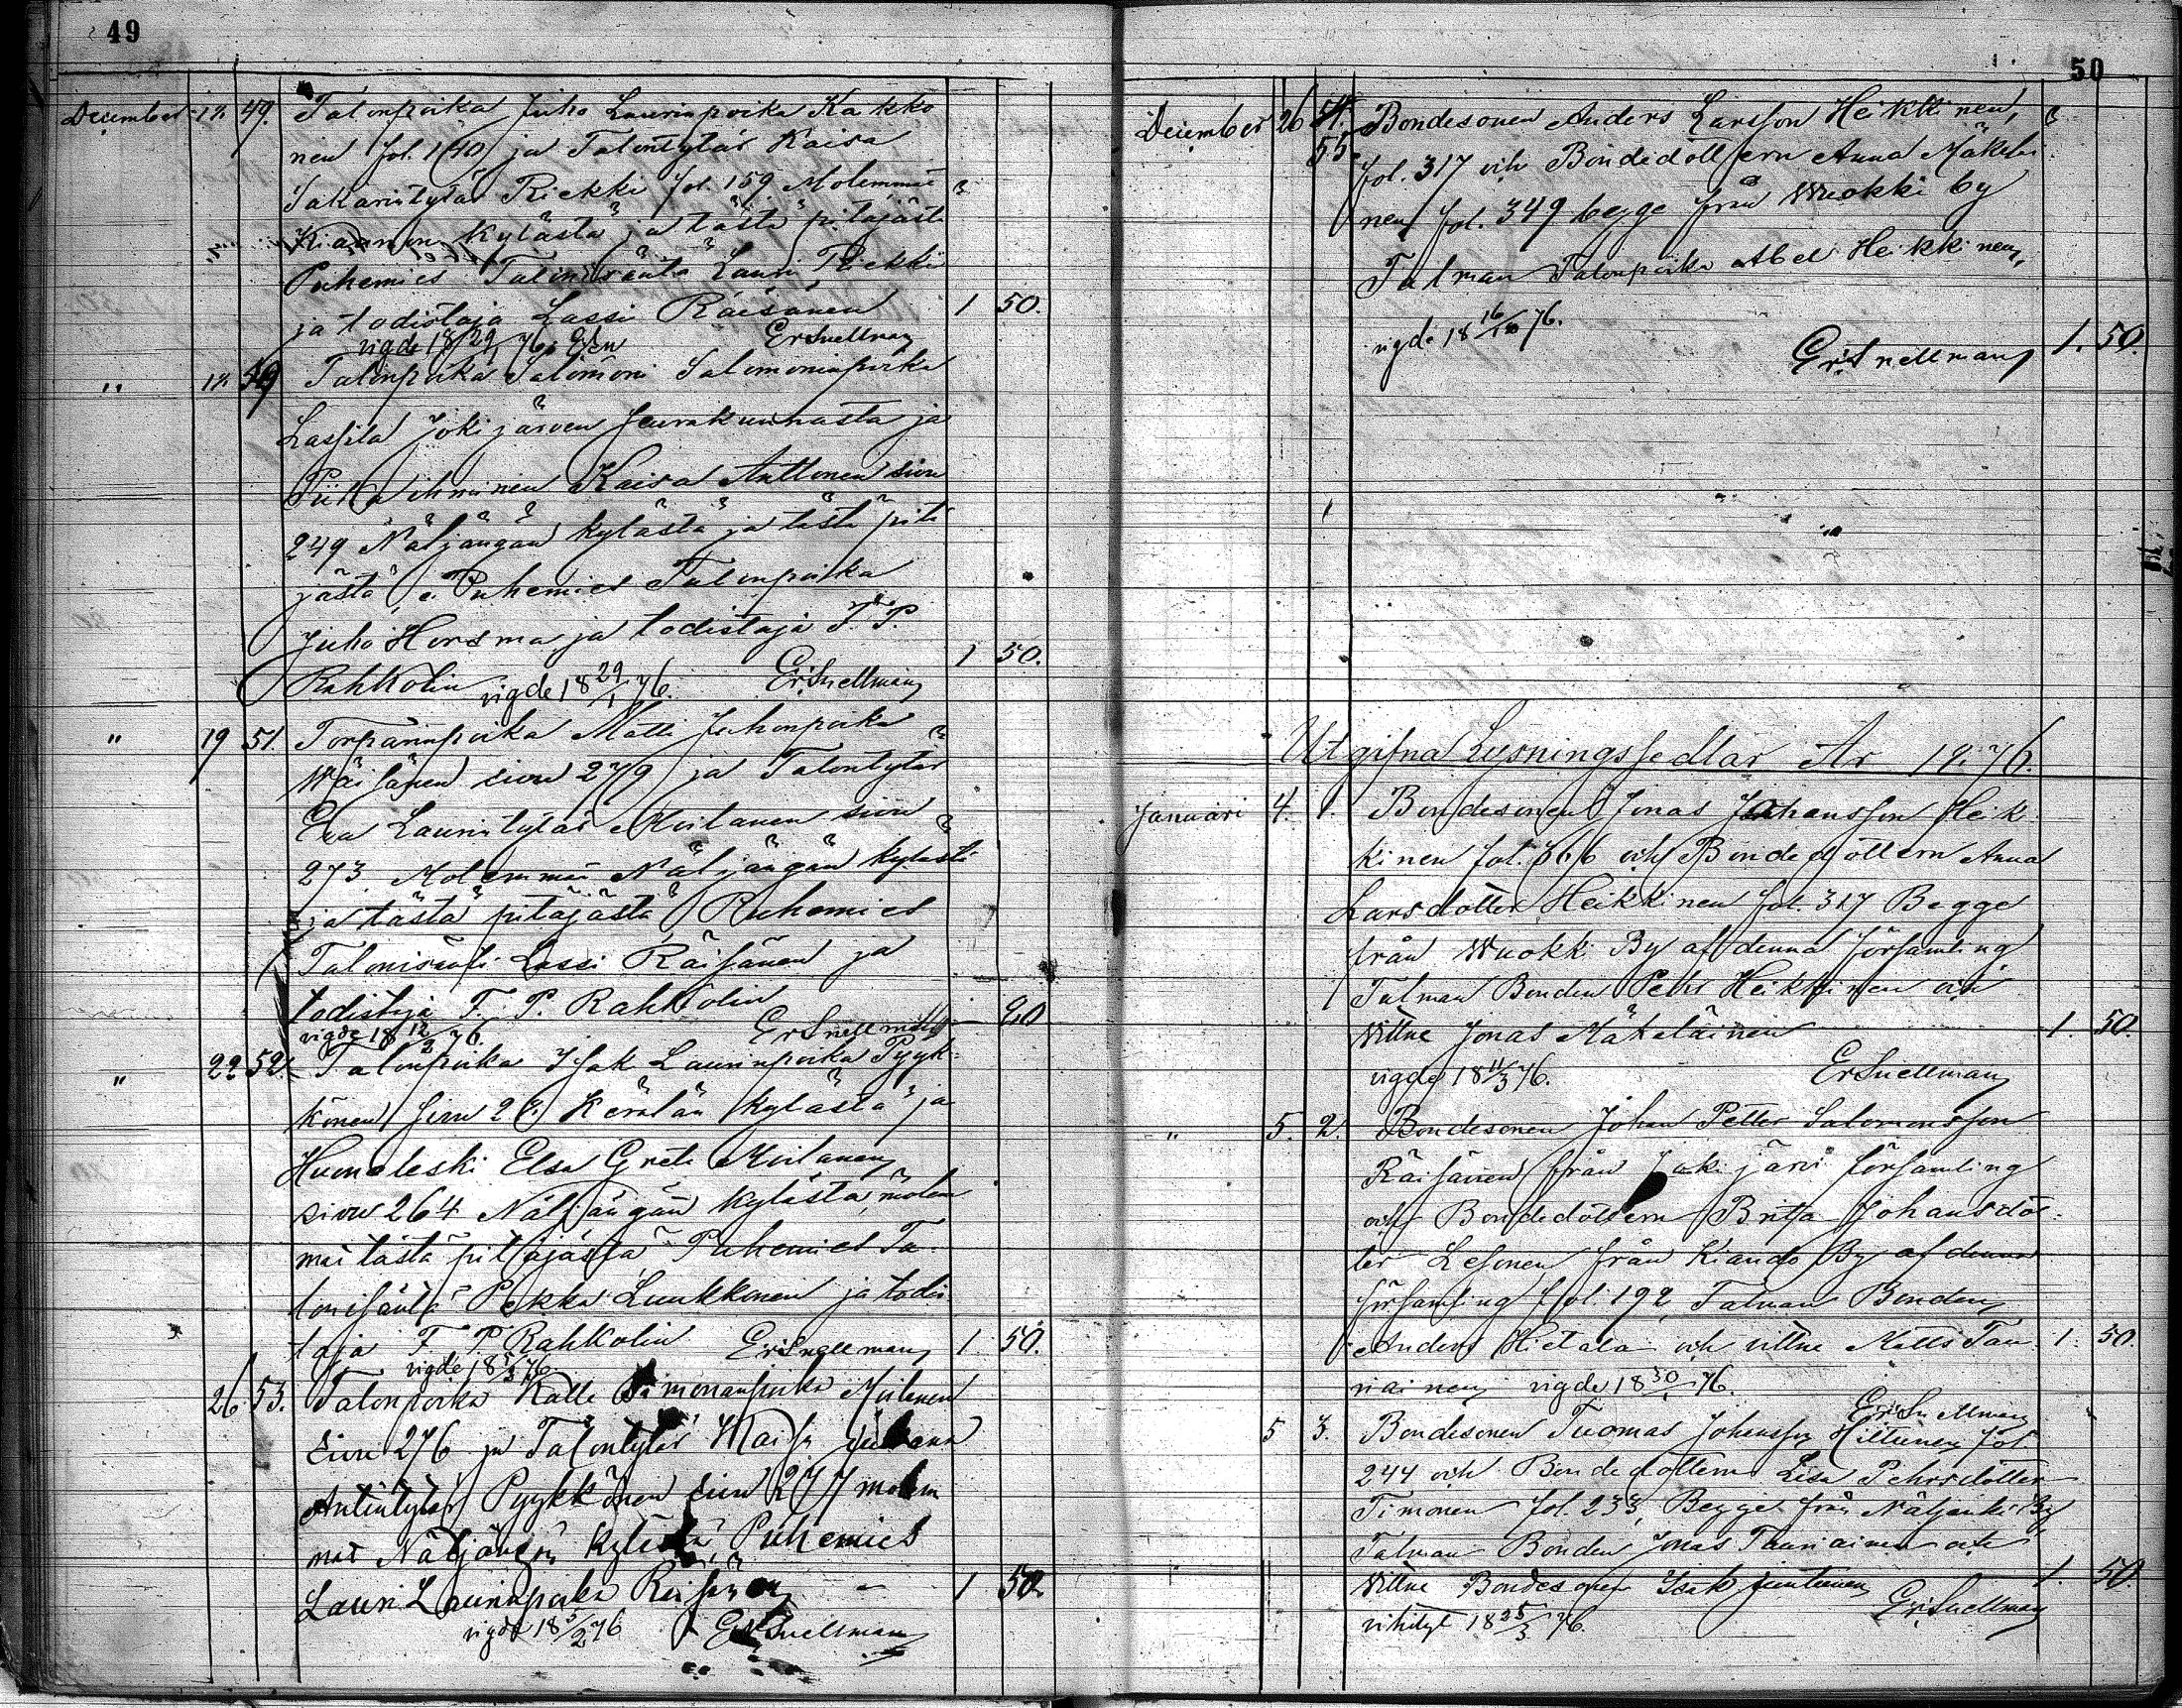 49
December 18 49. Talonpoika Juho Laurinpoika Kakko
nen fol. 140 ja Talontytär Kaisa
Sakarintytär Riekki fol. 159 Molemmat
Kiannan kylästä ja tästä pitäjästä
Puhemies Talonisäntä Lauri Riekki
ja todistaja Lassi Räisänen 1 50.
vigde 18 29/1 76. ErSnellman
" 18 Talonpoika Salomoni Salomoninpoika
Lassila Jokijärven seurakunnasta ja
Piika ihminen Kaisa Anttonen sivu
249 Näljängän kylästä ja tästä pitä
jästä, Puhemies Talonpoika
Juho Horsma ja todistaja F. P.
Rahkolin vigde 18 29/1 76. ErSnellman 1 50.
" 19 51. Torpaninpoika Matti Juhonpoika
Wäisänen sivu 279 ja Talontytär
Eva Laurintytär Moilanen sivu
273 Molemmat Näljängän kylästä
ja tästä pitäjästä, Puhemies
Talonisäntä Lassi Räisänen ja
todistaja F. P. Rahkolin
vigde 18 12/2 76. ErSnellman
" 22 52. Talonpoika Isak Laurinpoika Pyyk-
könen sivu Kerälän kylästä ja
Elsa Greta Moilanen
sivu 264 Näljängän kylästä, molem
mat tästä pitäjästä, Puhemies Ta-
lonisäntä Pekka Luukkonen ja todis
taja F. P. Rahkolin ErSnellman 1. 50.
vigde 18 76
26 53. Talonpoika Kalle Simonanpoika Moilanen
Sivu 276 ja Talontytär Maija
Antintytär Pyykkönen sivu 277 molem
mat Näljängän kylästä, Puhemies
Lauri Laurinpoika Räisänen 1 50.
vigde 18 5/2 76 ErSnellman
50
December 26 55. Bondesonen Anders Larsson Heikkinen,
fol. 317 och Bondedottern Anna Mäkelä
nen fol. 349 begge från Wuokki by
Talman Talonpoika Abel Heikkinen,
vigde 18 76.
ErSnellman 1. 50.
Utgifna Lysningssedlar År 1876.
Januari 4. 1. Bondesonen Jonas Johansson Heik
kinen fol. 366 och Bondedottern Anna
Larsdotter Heikkinen fol. 317 Begge
från Wuokki By af denna församling
Talman Bonden Petter Heikkinen och
vittne Jonas Mäkeläinen 1. 50.
vigde 18 11/3 76. ErSnellman
" 5. 2. Bondesonen Johan Petter Salomonsson
Räisänen från Jokijärvi församling
och Bondedottern Brita Johansdot-
ter Lesonen från Kiando By af denna
församling fol. 192, Talman Bonden
Anders Hietala och vittne Matts Tau 1. 50.
riainen vigde 18 30/1 76.
ErSnellman
5 3. Bondesonen Tuomas Johansson Hiltunen fol.
244 och Bondedottern Lisa Pehrsdotter
Timonen fol. 233, Begge från Näljänkä By
Talman Bonden Jonas Tauriainen och
Vittne Bondesonen Isak Juntunen 1. 50.
vihityt 18 25/3 76. ErSnellman